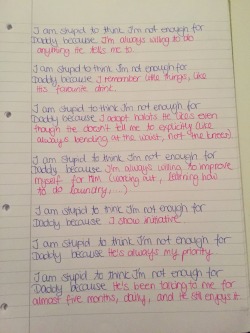 I am stupid to think I'm not enough for
Daddy because I'm always willing to do
anything He tells me to.
I am stupid to think I'm not enough for
Daddy because I remember like things, like
His favourite drink.
I am stupid to think I'm not enough for
Daddy because I adopt habits He likes even
though He doesn't tell me to explicitly (like
always bending at the waist, not the knees)
I am stupid to think I'm not enough for
Daddy because I'm always willing to improve
myself for Him (working out, learning how
to do laundry, ...)
I am stupid to think I'm not enough for
Daddy because I show initiative.
I am stupid to think I'm not enough for
Daddy because He's always my priority.
I am stupid to think I'm not enough for
Daddy because He's been talking to me for
almost five months, daily, and He still enjoys it.